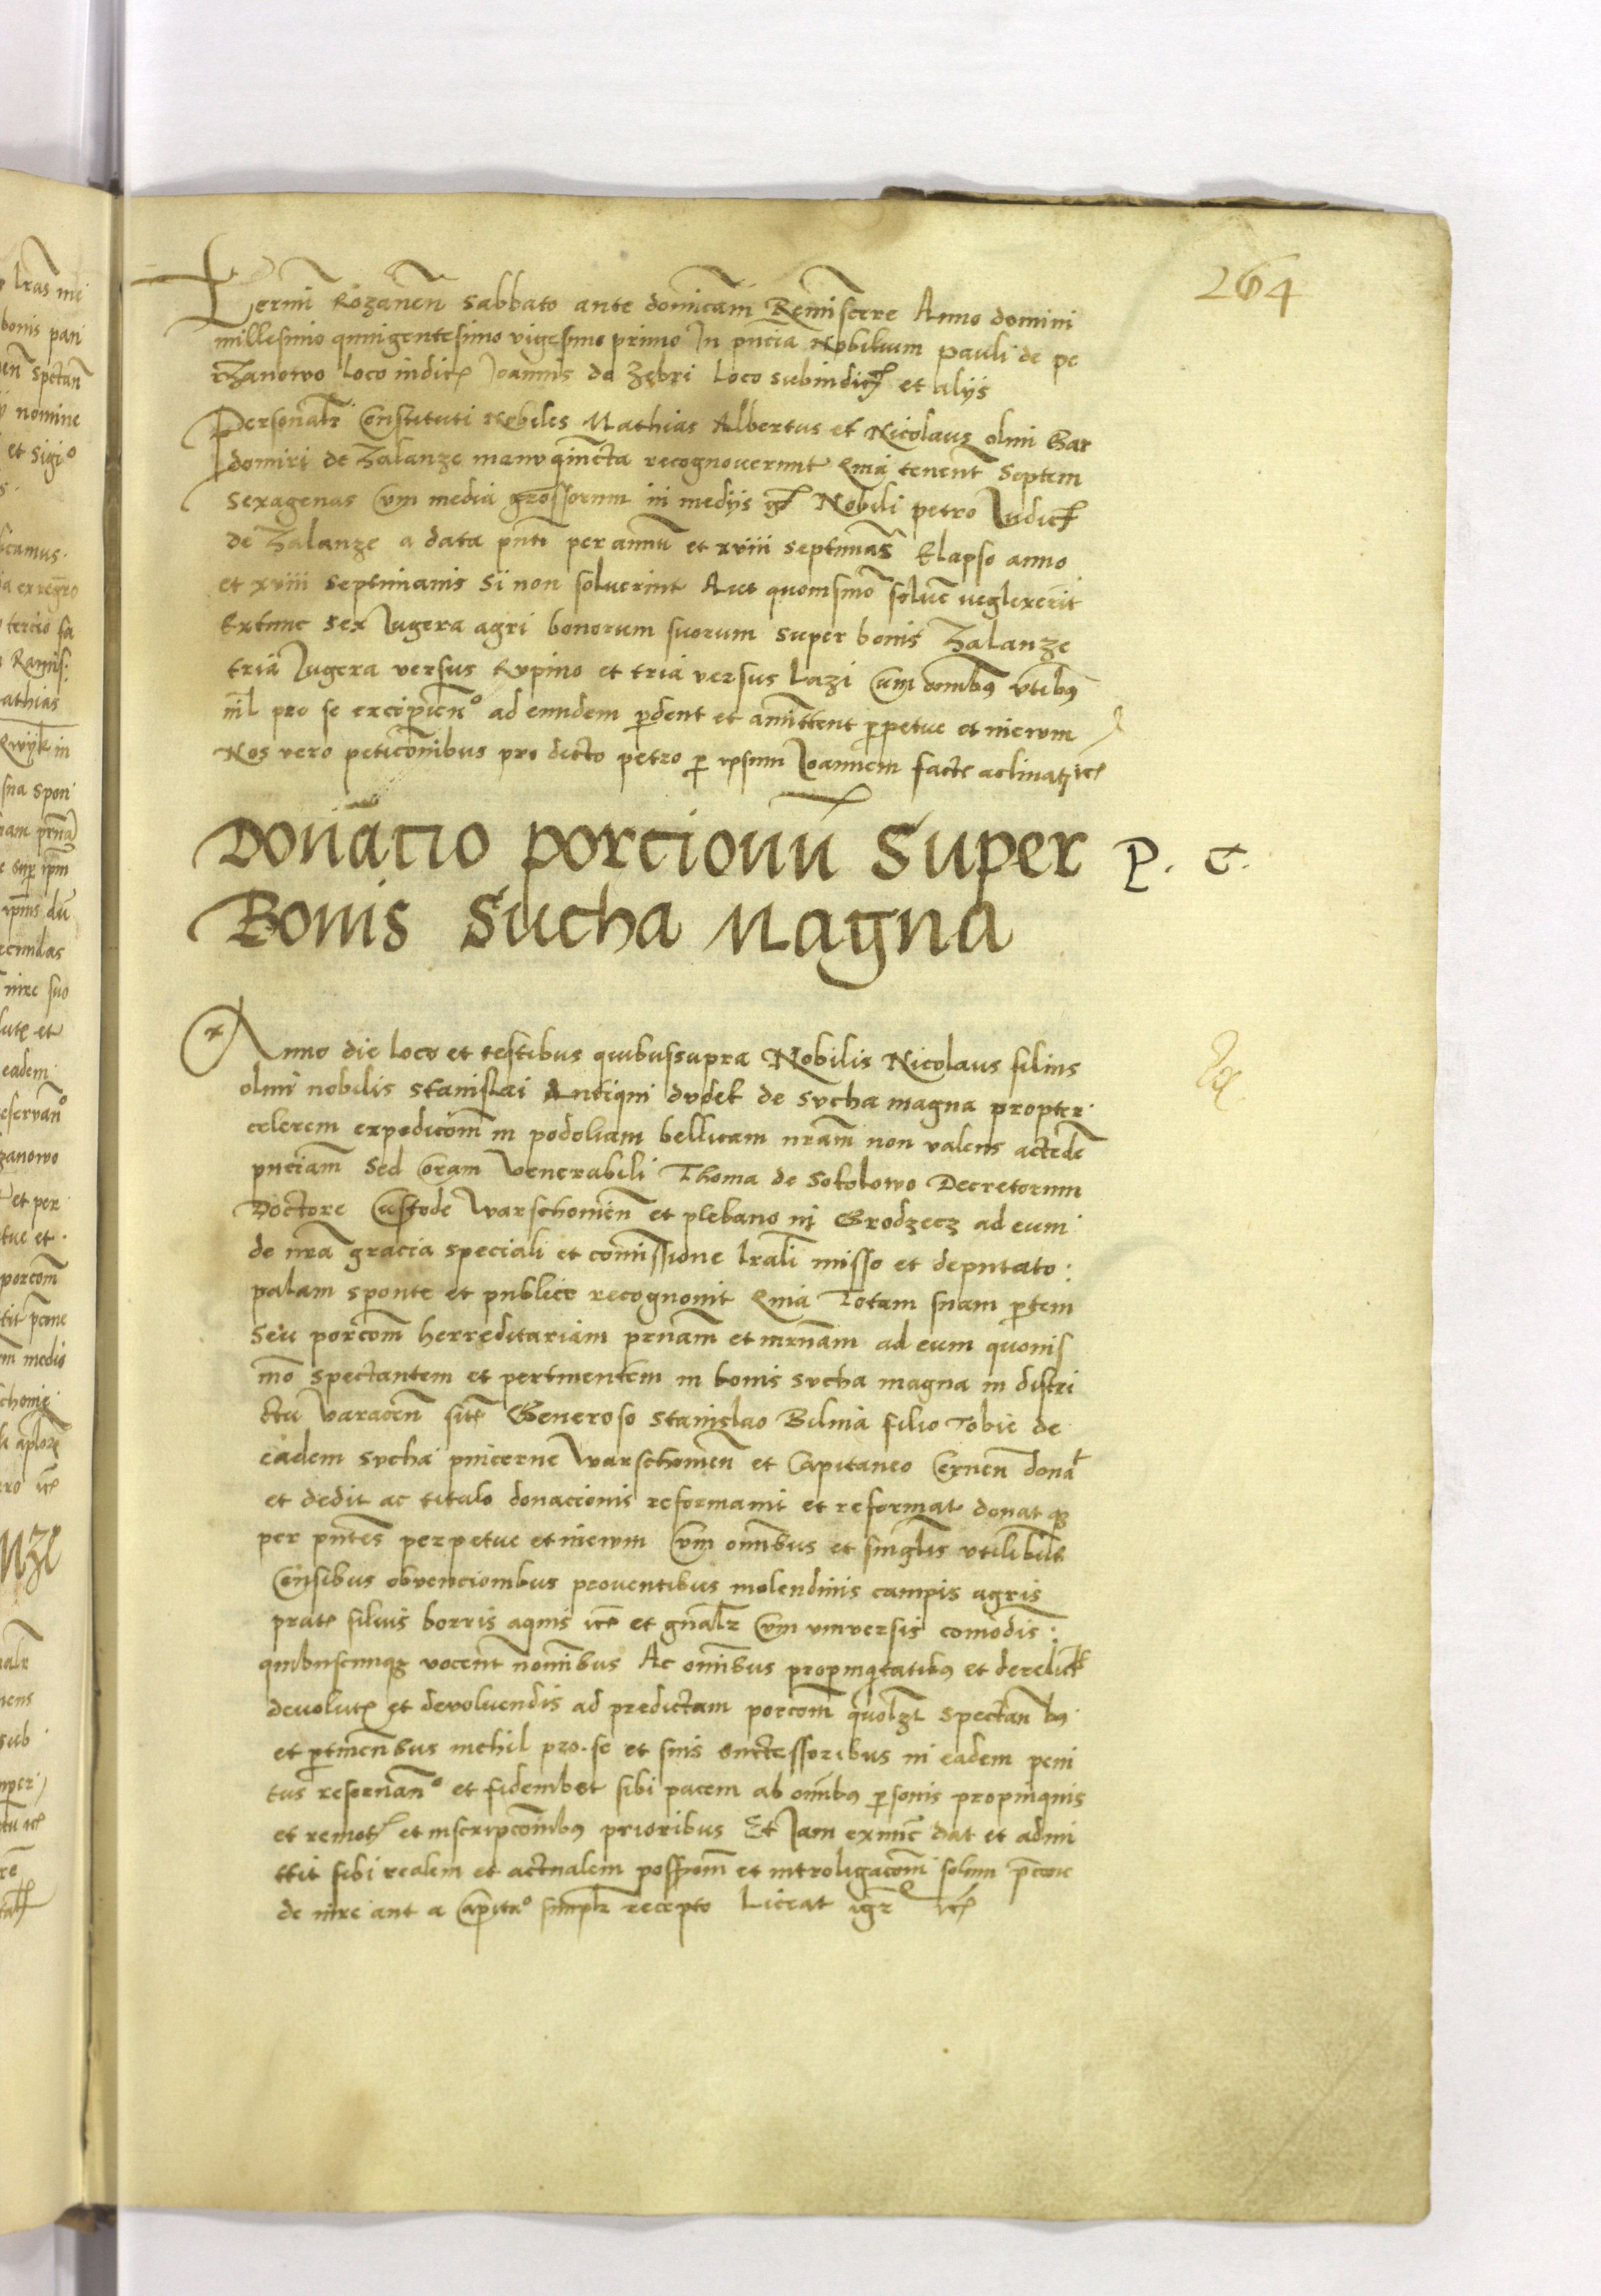 264
Termi Rozanen sabbato ante domicam Reminiscere Anno domini
millesimo quingentesimo vigesimo primo In pncia Nobilium pauli de pe
rzanowo loco iudic Joannis de Zebri loco subiudic et alijs
Personalr Constituti Nobiles Mathias Albertus et Nicolaus olim
domiri de Zalanze manu recognouerunt Quia tenent septem
sexagenas Cum media grossorum in medijs gr Nobili petro Iudic
de Zalanze a data pnti per annu et xviii septimas Elapso anno
et xviii septimanis Si non soluerint Aut quouismo solue neglexerit
Extunc sex Jugera agri bonorum suorum super bonis Zalanze
tria Jugera versus Rupino et tria versus Lazi Cum omibus vtibus
nil pro se excipien ad eundem perdent et amittent perpetue et in ewm
Nos vero peticionibus pro dicto petro per ipsum Joannem facte aclinati etc
Donacio porcionu Super
Bonis Sucha Magna
P. C.
Anno die loco et testibus quibussupra Nobilis Nicolaus filius
olim nobilis stanislai Antiqui dudek de sucha magna propter
celerem expedicom in podoliam bellicam nram non valens accede
pnciam Sed Coram Venerabili Thoma de sokolowo Decretorum
Doctore Custode Warschouien et plebano in Grodzecz ad eum
de nra gracia speciali et comissione lrali misso et deputato:
palam sponte et publice recognouit Quia Totam suam ptem
seu porcom herreditariam prnam et mrnam ad eum quouis
mo spectantem et pertinentem in bonis sucha magna in distri
ctu Varacen sitt Generoso stanislao Bilina filio Tobie de
eadem sucha pincerne Warschouien et Capitaneo Cernen dona
et dedit ac titulo donacionis reformauit et reformat donat q
per pntes perpetue et in ewm Cum omibus et singulis vtilibus
Censibus obvencionibus proventibus molendinis campis agris
prat siluis borris aquis etc et gnalr Cum vniversis comodis:
quibuscunq vocent nominibus Ac omibus propinquitatibus et derelict
deuolut et deuoluendis ad predictam porcom quolzt spectan bus
et ptinenbus nichil pro se et suis successoribus in eadem peni
tus reseruan et fidembet sibi pacem ab omibus psonis propinquis
et remot et inscripcoibus prioribus Et Jam exnunc dat et admi
ttit sibi realem et actualem possom et introligacom solum
de iure aut a Capita simplr recepto Liceat igr etc